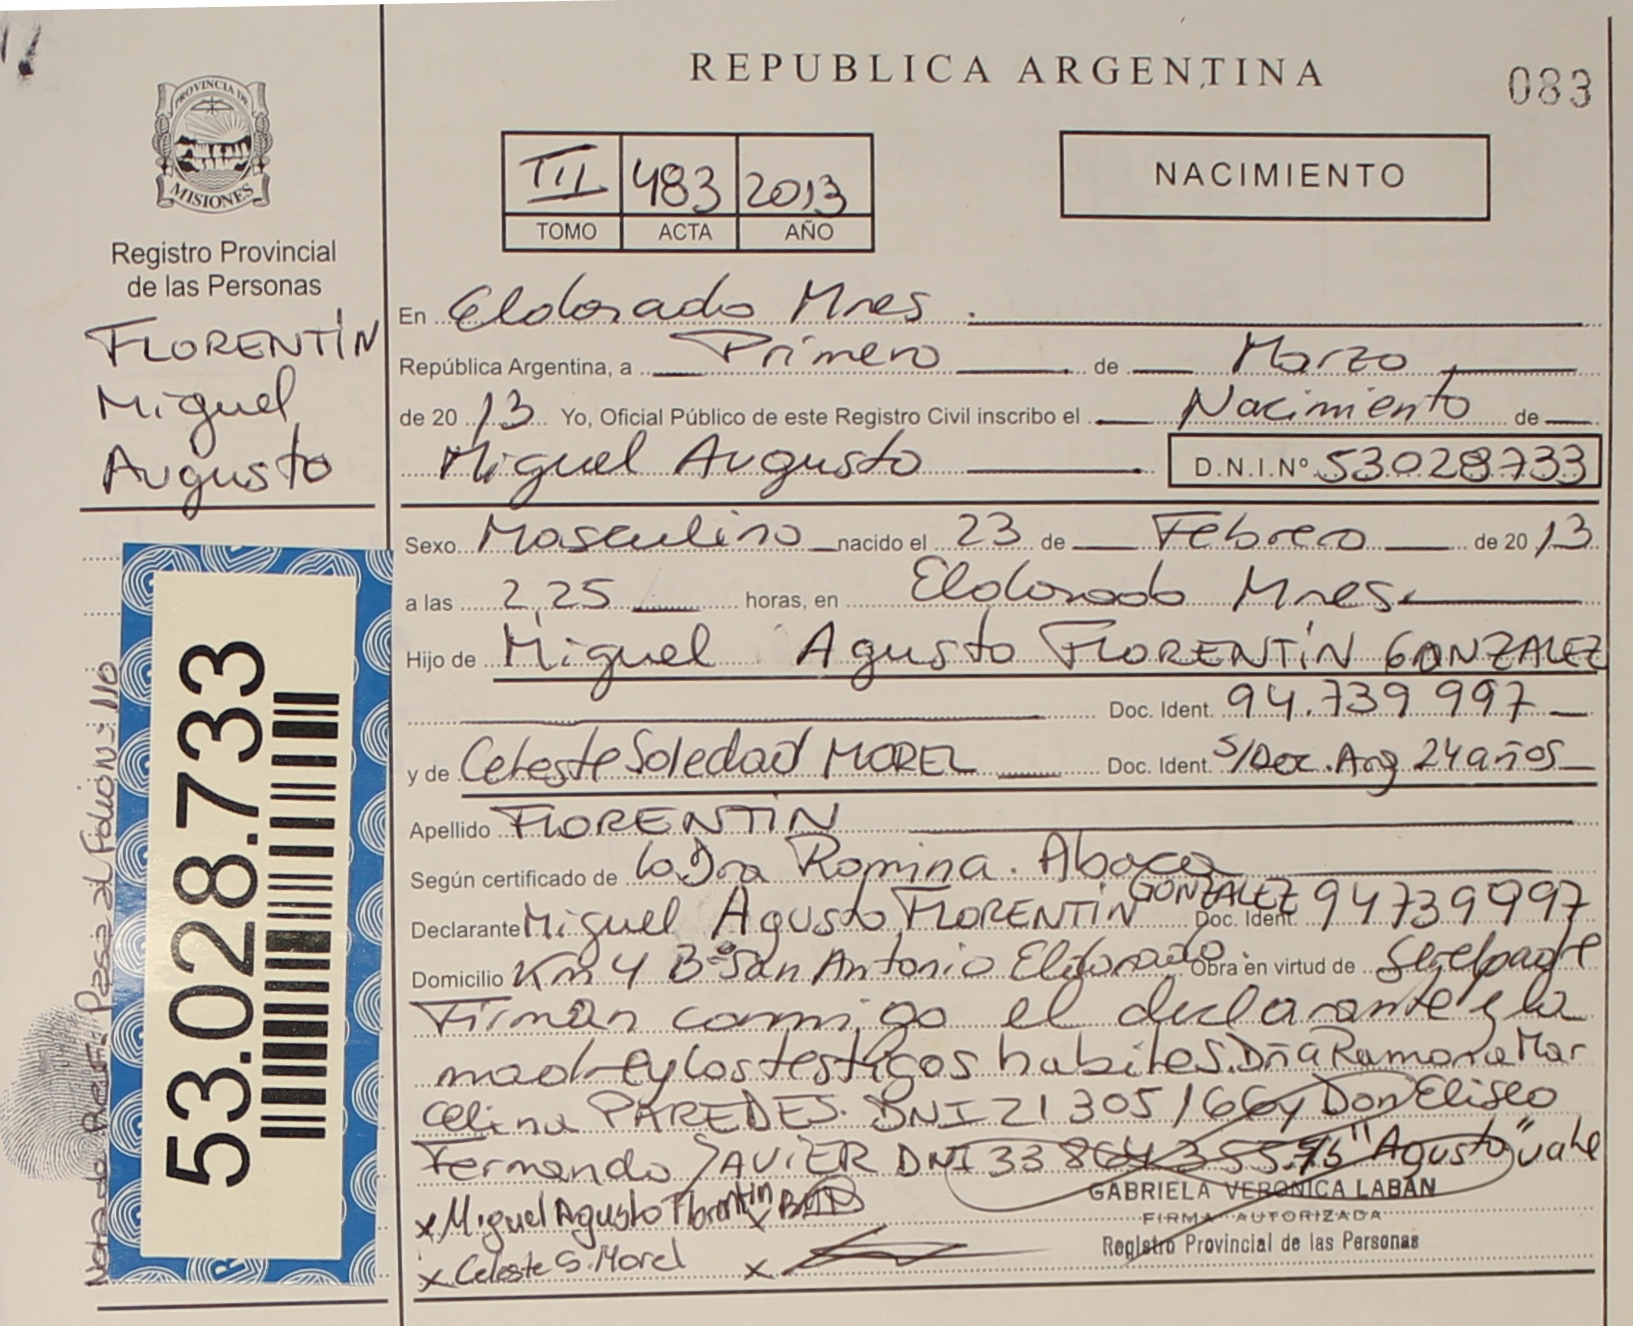 REPUBLICA ARGENTINA
083
PROVINCIA DE
MISIONES
Registro Provincial
de las Personas
FLORENTÍN
Miguel
Augusto
III 483 2013
TOMO ACTA AÑO
NACIMIENTO
En Eldorado Mnes.
República Argentina, a Primero de Marzo
de 2013 Yo, Oficial Público de este Registro Civil inscribo el Nacimiento de
Miguel Augusto D.N.I.Nº 53.028.733
Sexo Masculino nacido el 23 de Febrero de 2013
a las 2,25 horas, en Eldorado Mnes.
Hijo de Miguel Agusto FLORENTÍN GONZALEZ
Doc. Ident. 94.739 997
y de Celeste Soledad MOREL Doc. Ident. S/Doc. Arg 24 años
Apellido FLORENTÍN
Según certificado de la Dra Romina.
Declarante Miguel Agusto FLORENTÍN GONZALEZ Doc. Ident. 94739997
Domicilio Km 4 Bº San Antonio Eldorado Obra en virtud de Ser el padre
Firman conmigo el declarante y la
madre y los testigos habiles. Dña Ramona Mar
celina PAREDES. DNI 21 305 166 y Don Eliseo
Fernando DNI "Agusto" vale
x Miguel Agusto Florentin x
x Celeste S. Morel x
GABRIELA VERONICA LABAN
FIRMA AUTORIZADA
Registro Provincial de las Personas
53.028.733
Nota de Ref: Pasa al Folio Nº: 110